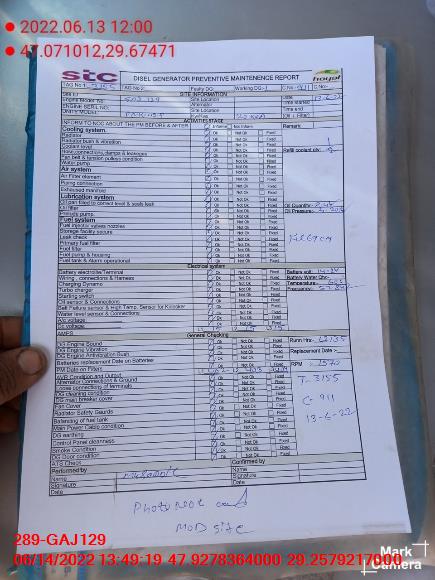 2022.06.13 12:00
47.071012,29.67471
stc
hoyal
DISEL GENERATOR PREVENTIVE MAINTENENCE REPORT
TAG No.1: 3155 TAG No.2: Faulty DG: Working DG: 1 C.No: 911 C.No:-
SITE INFORMATION
Site ID Site Location Date 13-6-22
Engine Model No. Site Location Time started
ENGINE SERIL NO. Alternator Time end
ACTIVITIES STAGE
INFORM TO NOC ABOUT THE PM BEFORE & AFTER Informe Not Inform Remark:
Cooling system
Radiator Ok Not Ok Fixed
Radiator bush & vibration Ok Not Ok Fixed
Coolant level Ok Not Ok Fixed Refill coolant qty:
Hose,connections,clamps & leakages Ok Not Ok Fixed
Fan belt & tension pulleys condition Ok Not Ok Fixed
Water pump Ok Not Ok Fixed
Air system
Air Filter element Ok Not Ok Fixed
Piping connection Ok Not Ok Fixed
Exhausted manifold Ok Not Ok Fixed
Lubrication system
Oil pan fitted to correct level & seals leak Ok Not Ok Fixed Oil Quantity:
Oil filter Ok Not Ok Fixed Oil Pressure:
Prelude pump Ok Not Ok Fixed
Fuel system
Fuel injector valves nozzles Ok Not Ok Fixed
Storage facility secure Ok Not Ok Fixed
Leak check Ok Not Ok Fixed
Primary fuel filter Ok Not Ok Fixed
Fuel filter Ok Not Ok Fixed
Fuel pump & housing Ok Not Ok Fixed
Fuel tank & Alarm operational Ok Not Ok Fixed
Electrical system
Battery electrolite/Terminal Ok Not Ok Fixed Battery volt:
Wiring , connections & Harness Ok Not Ok Fixed Battery Water Qty:
Charging Dynamo Ok Not Ok Fixed Temperature:
Turbo charger Ok Not Ok Fixed Frequency:
Starting switch Ok Not Ok Fixed
Oil sensor & Connections Ok Not Ok Fixed
Belt Failure sensor & High Temp. Sensor for Kirlosker Ok Not Ok Fixed
Water level sensor & Connections Ok Not Ok Fixed
A/c voltage
Dc voltage
AMPS
General Checking
DG Engine Sound Ok Not Ok Fixed Runn Hrs:
DG Engine Vibration Ok Not Ok Fixed
DG Engine Antivibration Bush Ok Not Ok Fixed Replacement Date:-
Batteries replacement Date on Batteries
PM Date on Filters RPM 1570
AVR Condition and Output Ok Not Ok Fixed
Alternator Connections & Ground Ok Not Ok Fixed T-3155
Loose connections of terminals Ok Not Ok Fixed
DG cleaning condition Ok Not Ok Fixed C-911
DG main breaker cover Ok Not Ok Fixed
Fan Cover Ok Not Ok Fixed 13-6-22
Radiator Safety Gaurds Ok Not Ok Fixed
Balancing of fuel tank Ok Not Ok Fixed
Main Power Cable condition Ok Not Ok Fixed
DG earthing Ok Not Ok Fixed
Control Panel cleanness Ok Not Ok Fixed
Smoke Condition Ok Not Ok Fixed
DG Door condition Ok Not Ok Fixed
ATS Check
Performed by Confirmed by
Name Name
Signature Signature
Date Date
Photo NOC and
MOD site
289-GAJ129
06/14/2022 13:49:19 47.9278364000 29.2579217000
Mark
Camera